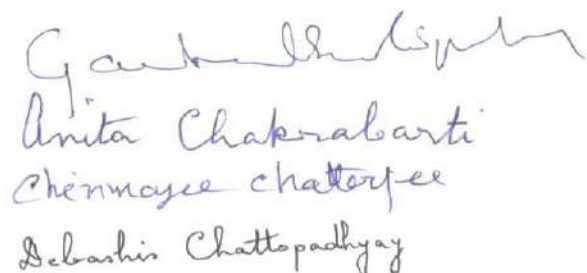 Anita Chakrabarti
Chenmayee Chatterjee
Debashis Chattopadhyay